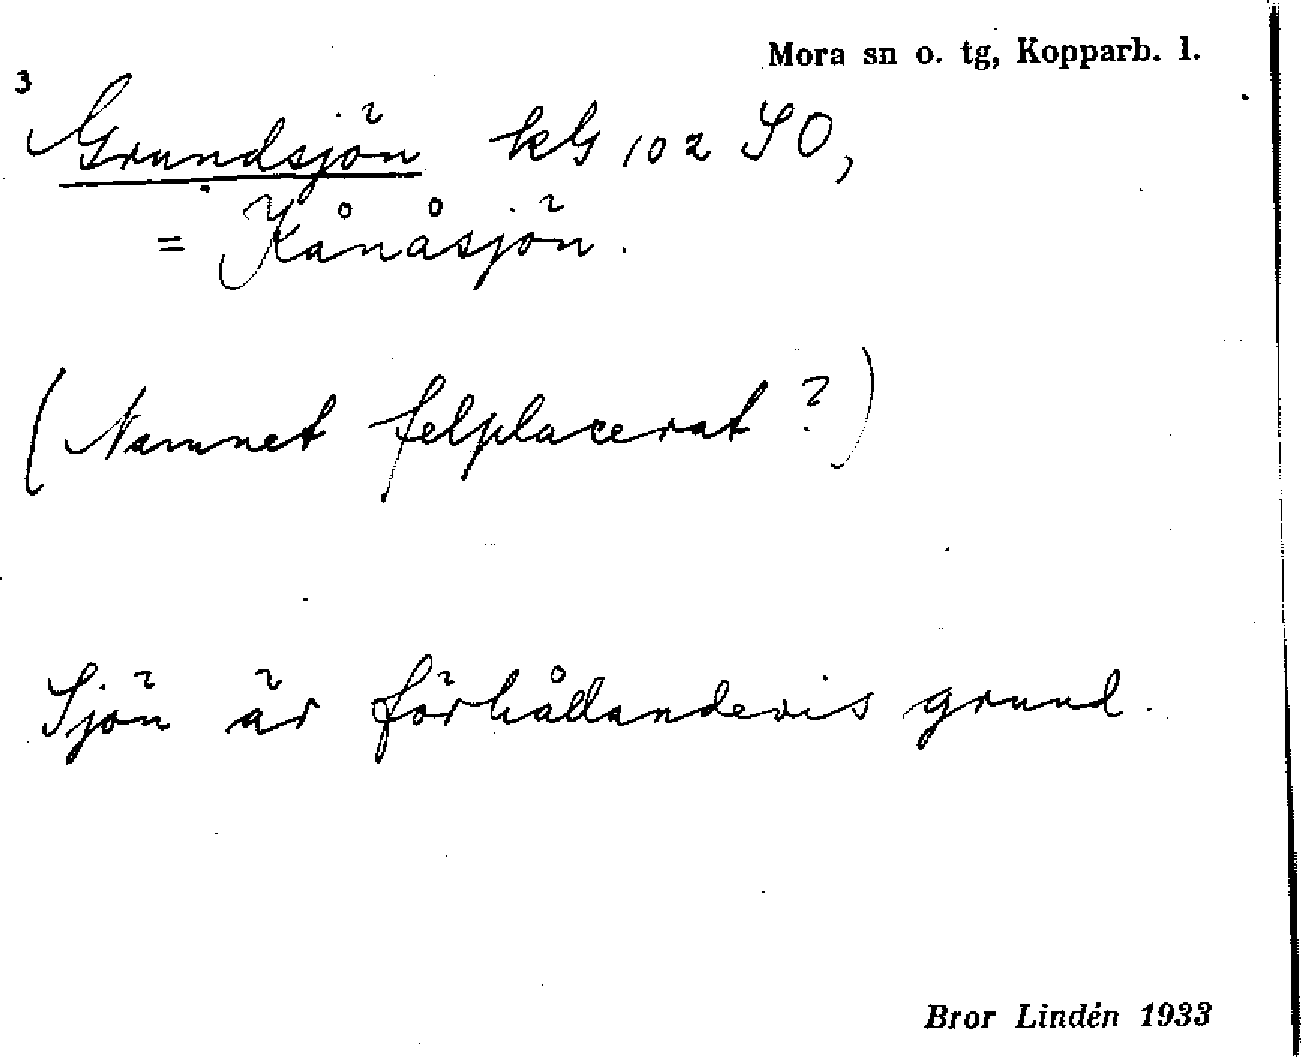 Mora sn o. tg, Kopparb. l.
3
Grundsjön kbl 102 SO,
= Kånåsjön.
(Namnet felplacerat?)
Sjön är förhållandevis grund.
Bror Lindén 1933